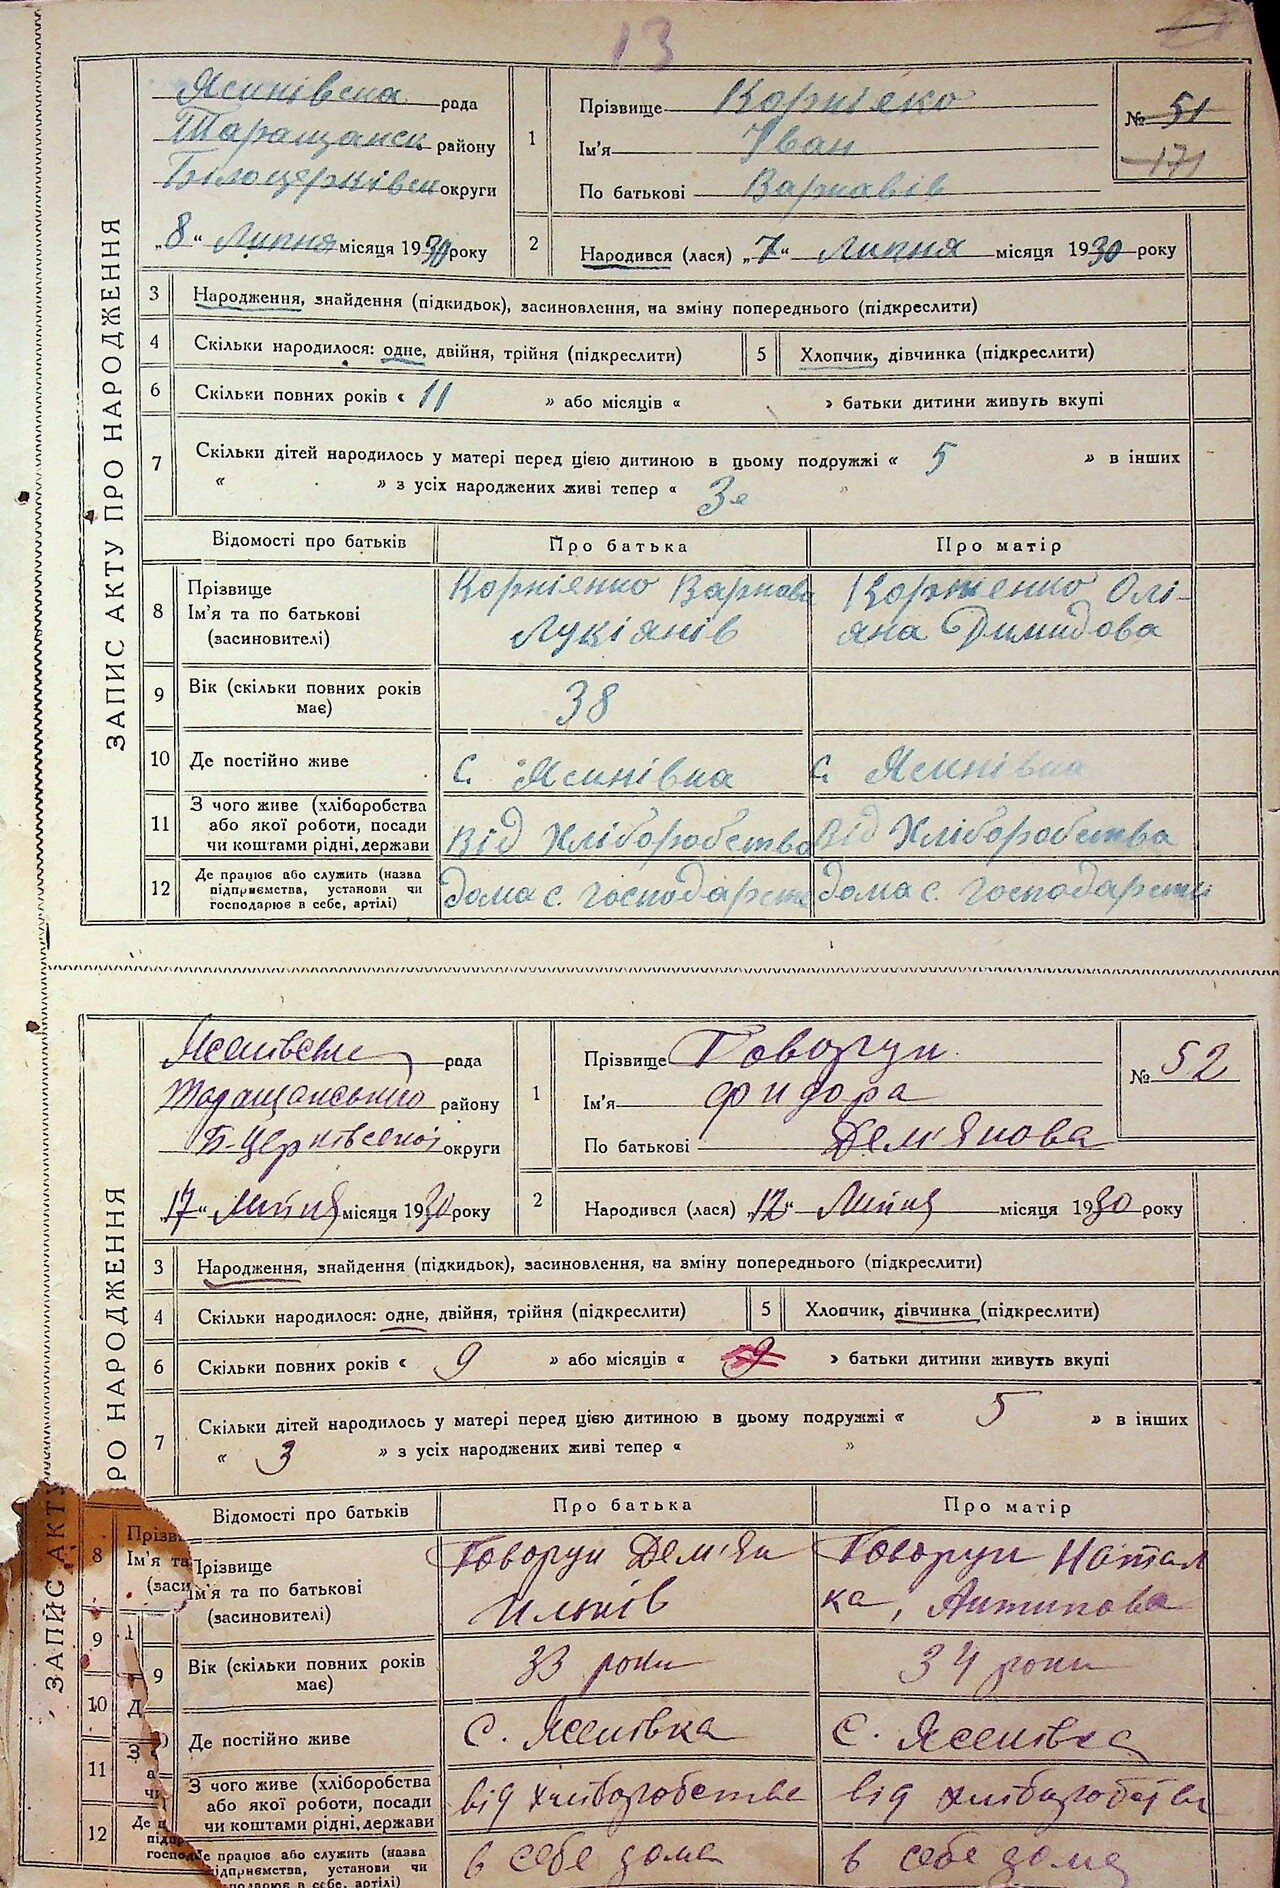 13
ЗАПИС АКТУ ПРО НАРОДЖЕННЯ
Ясинівска рада
Таращанск. району
Білоцерківск округи
„8“ Липня місяця 1930 року
1
Прізвище Корніяко
Ім'я Іван
По батькові Варнавів
№ 51
171
2
Народився (лася) „7“ Липня місяця 1930 року
3 Народження, знайдення (підкидьок), засиновлення, на зміну попереднього (підкреслити)
4 Скільки народилося: одне, двійня, трійня (підкреслити) 5 Хлопчик, дівчинка (підкреслити)
6 Скільки повних років « 11 » або місяців « » батьки дитини живуть вкупі
7 Скільки дітей народилось у матері перед цією дитиною в цьому подружжі « 5 » в інших
« » з усіх народжених живі тепер « 3є »
Відомості про батьків Про батька Про матір
8 Прізвище Ім'я та по батькові (засиновителі)
Корнієнко Варнава Лукіянів
Корнієнко Оліяна Димидова
9 Вік (скільки повних років має) 38
10 Де постійно живе с. Ясинівка с. Ясинівка
11 З чого живе (хліборобства або якої роботи, посади чи коштами рідні, держави
Від Хліборобства Від Хліборобства
12 Де працює або служить (назва підприємства, установи чи господарює в себе, артілі)
дома с. господарств дома с. господарств
РО НАРОДЖЕННЯ
рада
Таращанського району
Б-Церківської округи
„17“ Липня місяця 1930 року
1
Прізвище Говорун
Ім'я Фидора
По батькові Дем'янова
№ 52
2
Народився (лася) „12“ Липня місяця 1930 року
3 Народження, знайдення (підкидьок), засиновлення, на зміну попереднього (підкреслити)
4 Скільки народилося: одне, двійня, трійня (підкреслити) 5 Хлопчик, дівчинка (підкреслити)
6 Скільки повних років « 9 » або місяців « 9 » батьки дитини живуть вкупі
7 Скільки дітей народилось у матері перед цією дитиною в цьому подружжі « 5 » в інших
« 3 » з усіх народжених живі тепер « »
Відомості про батьків Про батька Про матір
Прізвище Ім'я та по батькові (засиновителі)
Говорун Дем'ян Ильків
Говорун Наталка, Антипова
9 Вік (скільки повних років має) 33 роки 34 роки
Де постійно живе с. Ясенівка с. Ясенівка
З чого живе (хліборобства або якої роботи, посади чи коштами рідні, держави
від хліборобства від хліборобства
Де працює або служить (назва ідприємства, установи чи сподарює в себе, артілі)
в себе дома в себе дома
ЗАПИС АКТУ
8 Прізв
Ім'я та
(заси
9
10 Д
11 З
а
чи
12 Де п
підпр
господ